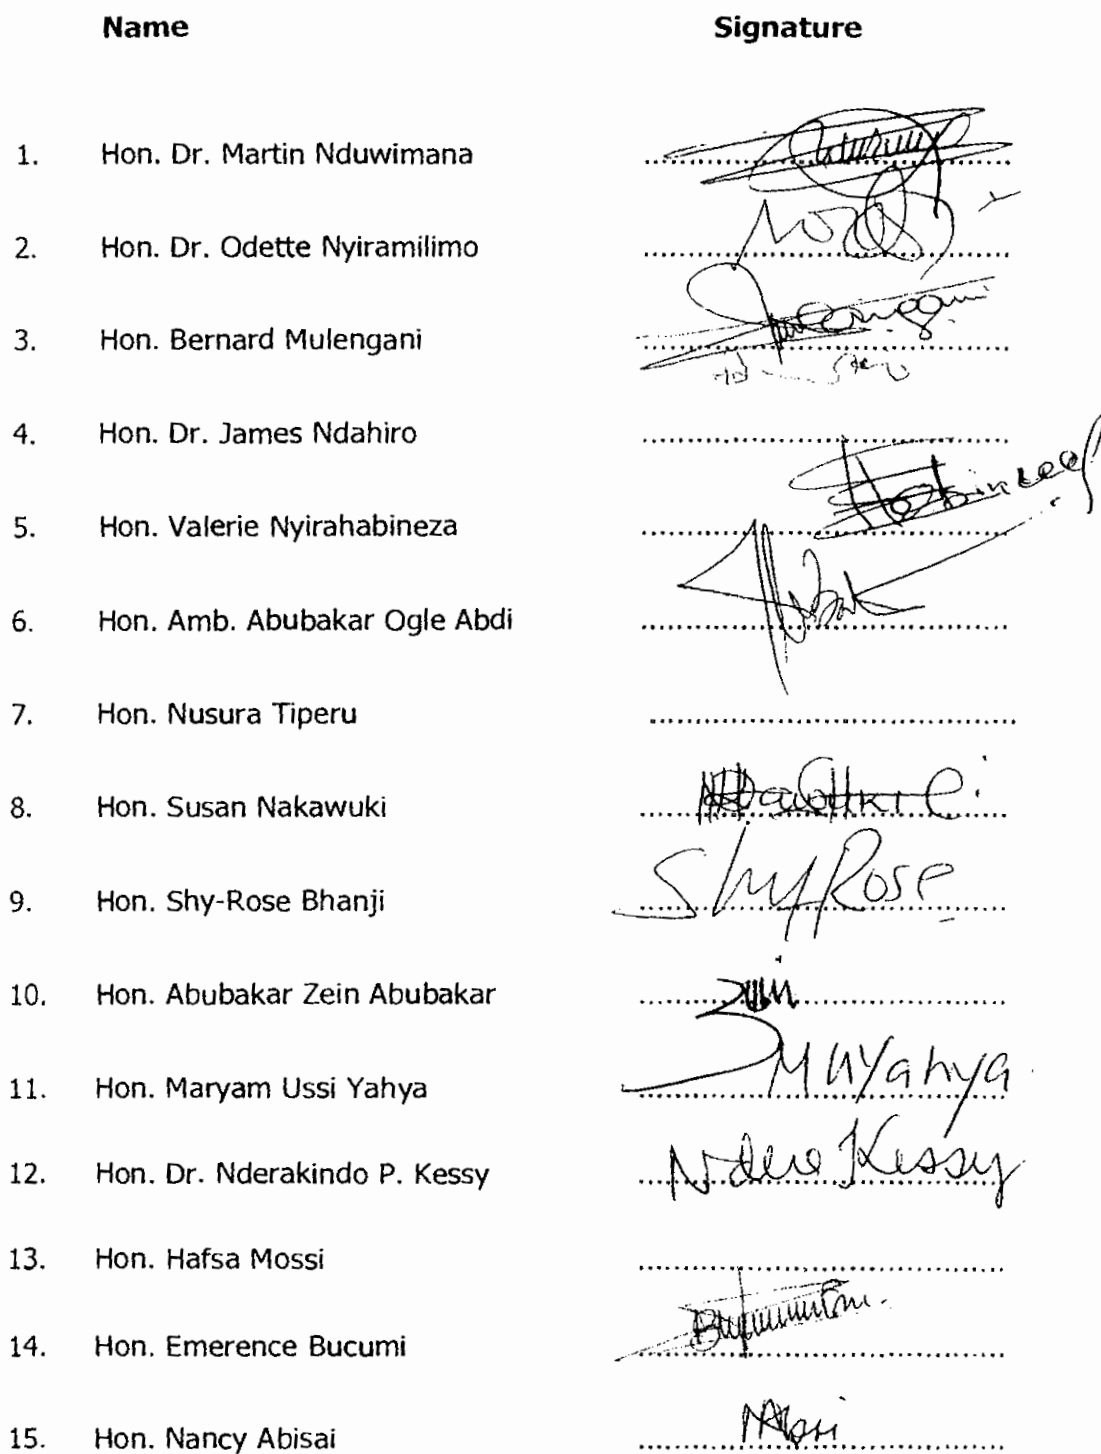 Name Signature
1. Hon. Dr. Martin Nduwimana
2. Hon. Dr. Odette Nyiramilimo
3. Hon. Bernard Mulengani
4. Hon. Dr. James Ndahiro
5. Hon. Valerie Nyirahabineza
6. Hon. Amb. Abubakar Ogle Abdi
7. Hon. Nusura Tiperu
8. Hon. Susan Nakawuki
9. Hon. Shy-Rose Bhanji ShyRose
10. Hon. Abubakar Zein Abubakar Zein
11. Hon. Maryam Ussi Yahya MUYahya
12. Hon. Dr. Nderakindo P. Kessy Ndere Kessy
13. Hon. Hafsa Mossi
14. Hon. Emerence Bucumi
15. Hon. Nancy Abisai